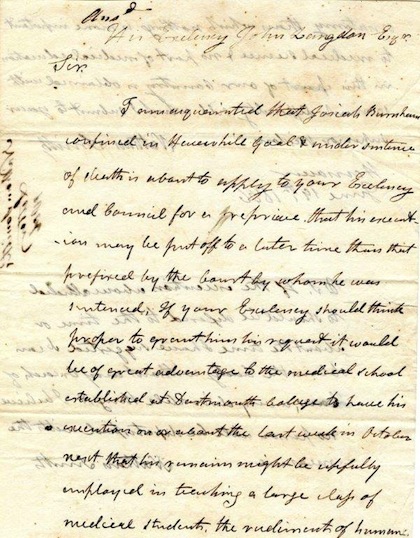 Ansd
His Excelency John Langdon Esqr.
Sir.
I am acquainted that Josiah Burnham
confined in Haverhile Goal & under sentence
of death is about to apply to your Excelency
and Council for a repriave. that his execut
-ion may be put off to a later time than that
prefixed by the court by whom he was
sentenced; If your Excelency should think
proper to grant him his request it would
be of great advantage to the medical school
established at Dartmouth College to have his
execution on or about the last week in October
next that his remains might be usefully
employed in teaching a large class of
medical students, the rudiment of humane